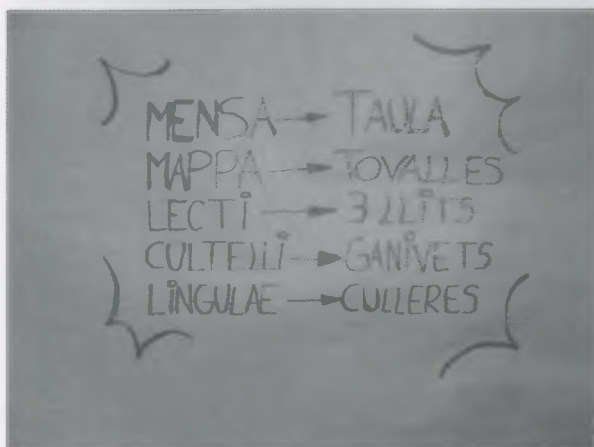 MENSA → TAULA
MAPPA → TOVALLES
LECTI → 3 LLITS
CULTELLI → GANIVETS
LINGULAE → CULLERES